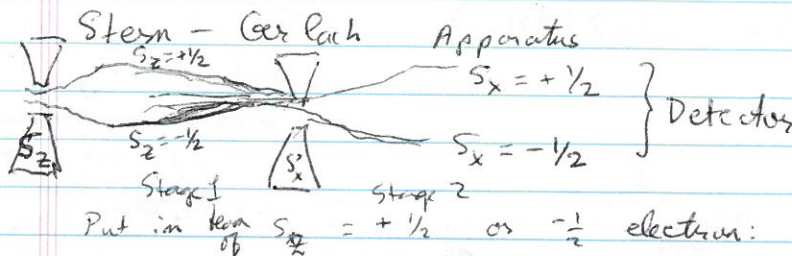 Stern - Gerlach Apparatus
S_z = +1/2
S_x = +1/2
Detector
S_z
S_z = -1/2
S_x
S_x = -1/2
Stage 1
Stage 2
Put in beam of S_z = + 1/2 or -1/2 electron: